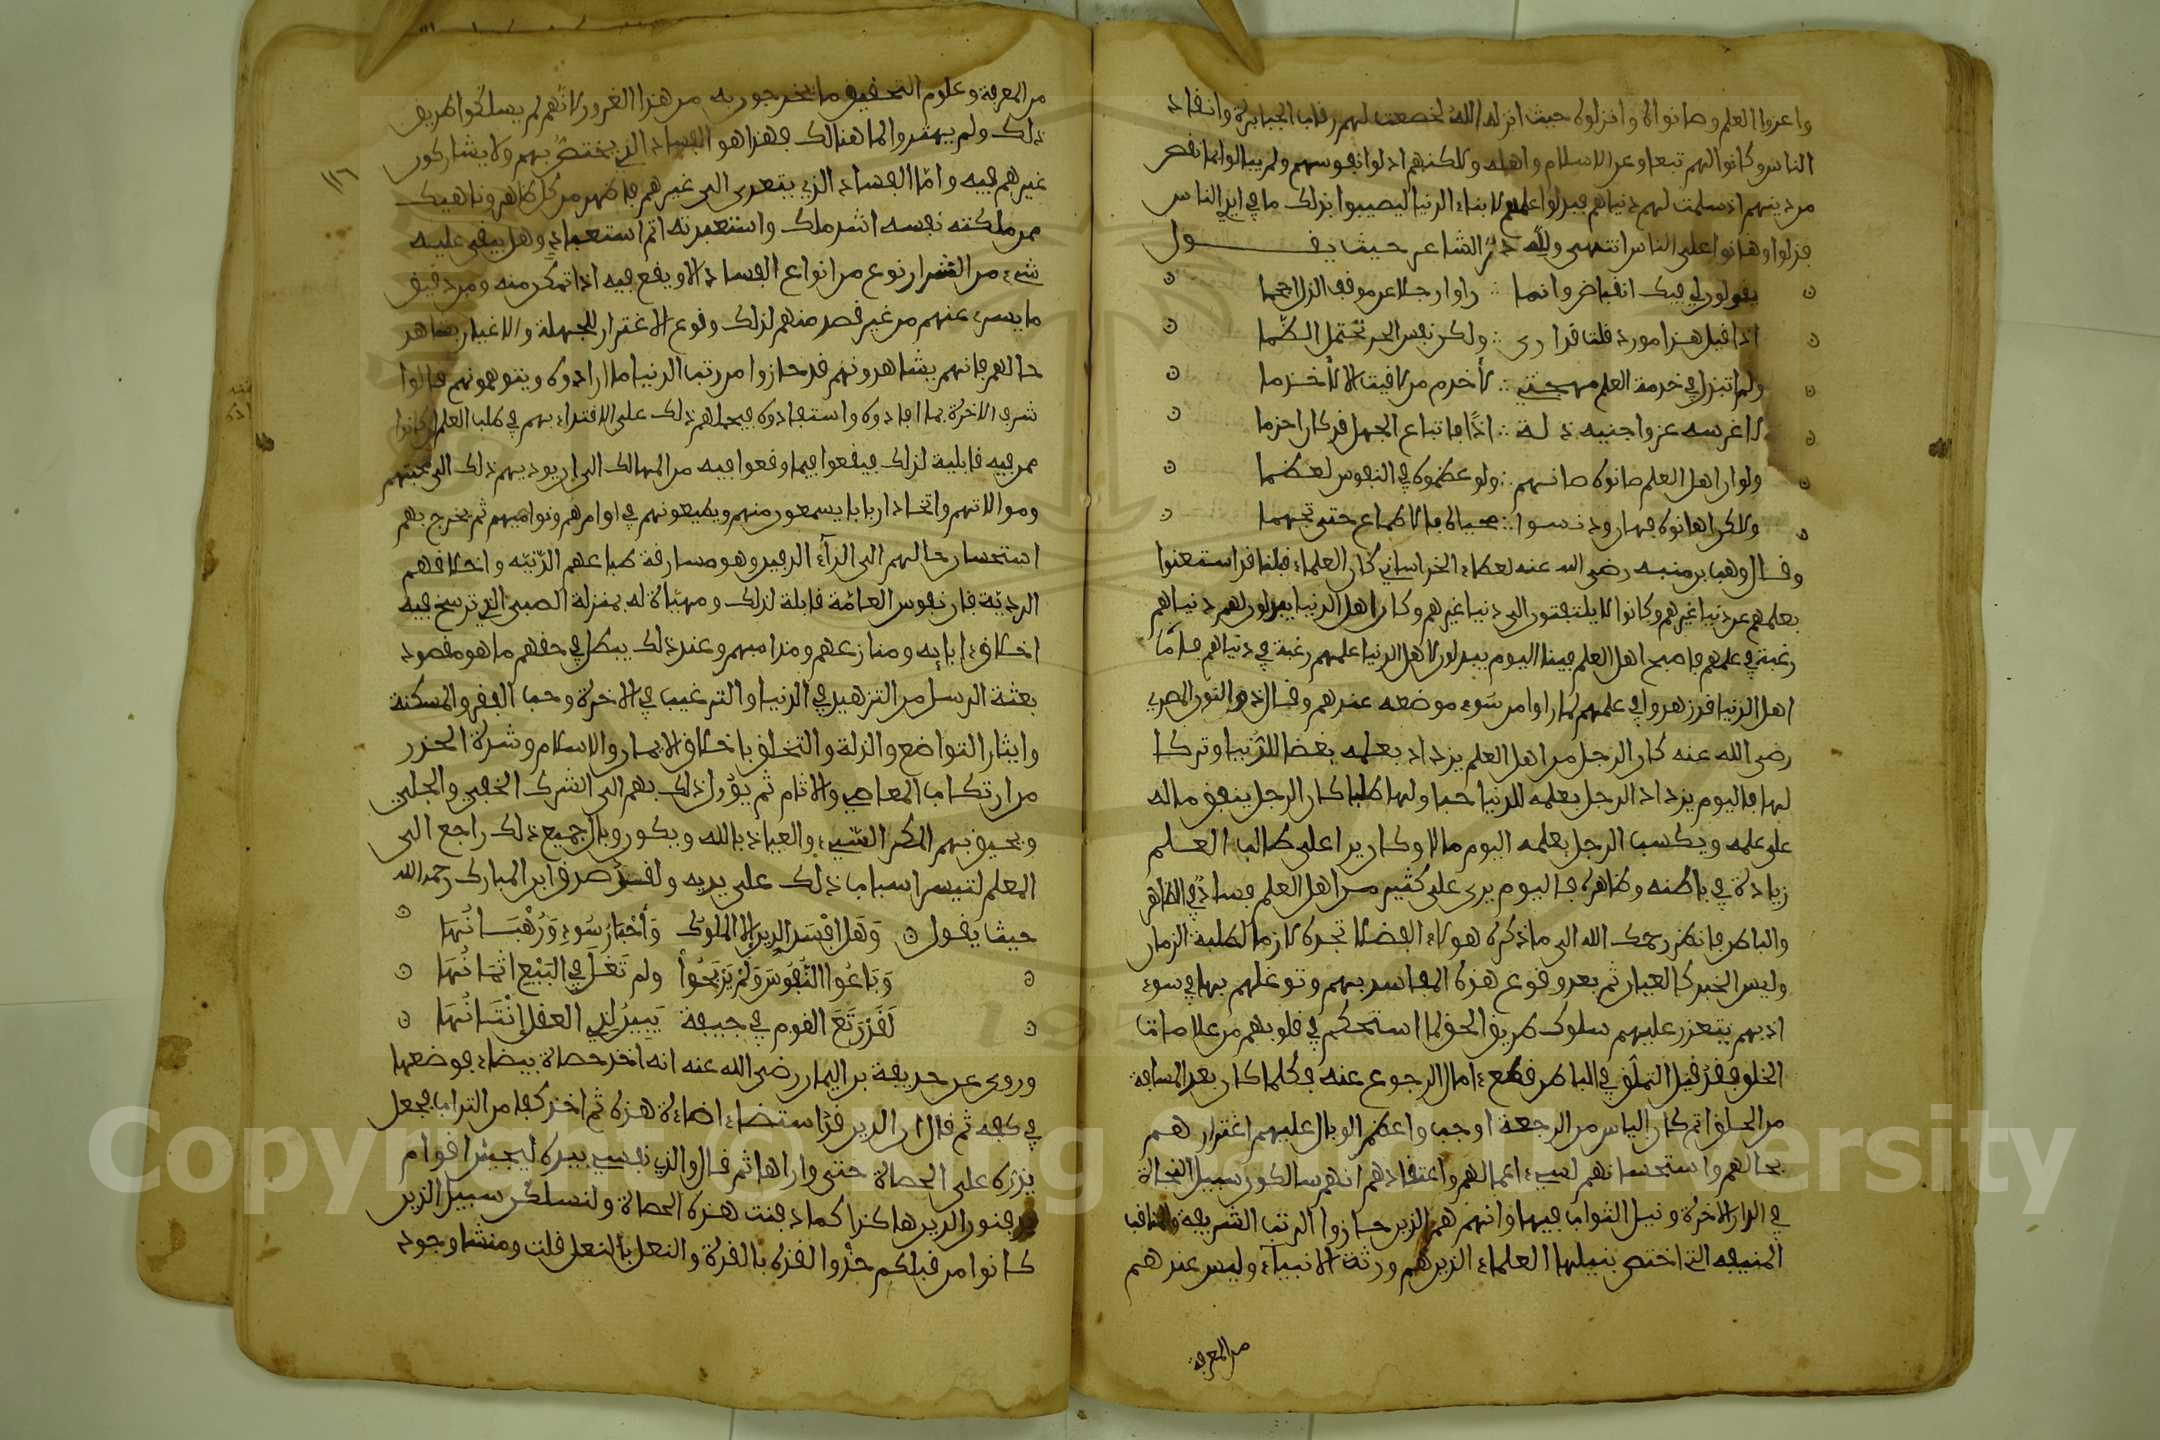 واعزوا العلم وصانوه وانزلوه حيث انزله الله لخضعت لهم رقاب الجبابرة وانقاد
الناس وكانوا لهم تبعا وعز الاسلام واهله ولاكنهم اذلوا نفوسهم ولم يبالوا بما نقص
من دينهم اذ سلمت لهم دنياهم فبذلوا علمهم لابناء الدنيا ليصيبوا بذلك ما في ايدي الناس
فذلوا وهانوا على الناس انتهى ولله در الشاعر حيث يقول
يقولون لي فيك انقباض وانما ∴ راوا رجلا عن موقف الذل احجما
اذا قيل هذا مورد قلت قد ارى ∴ ولكن نفس الحر تحتمل الظما
ولم ابتذل في خدمة العلم مهجتي ∴ لأخدم من لاقيت الا لأخدما
أاغرسه عزا واجنيه ذلة ∴ اذا فاتباع الجهل قد كان احزما
ولو ان اهل العلم صانوه صانهم ∴ ولو عظموه في النفوس لعظما
ولاكن اهانوه فهان ودنسوا ∴ محياه بالاطماع حتى تجهما
وقال وهب بن منبه رضى الله عنه لعطاء الخراساني كان العلماء قبلنا قد استغنوا
بعلمهم عن دنيا غيرهم وكانوا لا يلتفتون الى دنيا غيرهم وكان اهل الدنيا يبذلون لهم دنياهم
رغبة في علمهم فاصبح اهل العلم فينا اليوم يبذلون لاهل الدنيا علمهم رغبة في دنياهم فامّا
اهل الدنيا قد زهدوا في علمهم لما راوا من سوء موضعه عندهم وقال ذو النون المصري
رضى الله عنه كان الرجل من اهل العلم يزداد بعلمه بغضا للدّنيا وتركا
لها فاليوم يزداد الرجل بعلمه للدنيا حبا ولها طلبا كان الرجل ينفق ماله
على علمه ويكسب الرجل بعلمه اليوم مالا وكان يرا على طالب العلم
زيادة في باطنه وظاهره فاليوم يرى على كثير من اهل العلم فسادٌ في الظاهر
والباطن فانظر رحمك الله الى ما ذكره هولاء الفضلا تجده لازما لطلبة الزمان
وليس الخبر كالعيان ثم بعد وقوع هذه المفاسد بهم وتوغلهم بها في سوء
ادبهم يتعذر عليهم سلوك طريق الحق لما استحكم في قلوبهم من علامات
الخلق فقد قيل التملّق في الباطن قطع ءامال الرجوع عنه فكلما كان بعد المسافة
من الحلق اتم كان الياس من الرجعة اوجب واعظم الوبال عليهم اغترارهم
بحالهم واستحسانهم لسيء اعمالهم واعتقادهم انهم سالكون سبيل النجاة
في الدار الاخرة ونيل الثواب فيها وانهم هم الذين حازوا الرتب الشريفة والمناقب
المنيفه التي اختص بنيلها العلماء الذين هم ورثة الانبياء وليس عندهم
من المعرفة
١١٦
من المعرفة وعلوم التحقيق ما يخرجون به من هذا الغرور لانّهم لم يسلكوا طريق
ذلك ولم يهتدوا لما هنالك فهذا هو الفساد الذي يختصّ بهم ولا يشاركون
غيرهم فيه وامّا الفساد الذي يتعدى الى غيرهم فاظهر من كل ظاهر وناهيك
بمن ملكته نفسه اشد ملك واستعبدته اتم استعبادٍ وهل يبقى عليه
شيء من الشر او نوع من انواع الفساد الا ويقع فيه اذا تمكن منه ومن دقيق
ما يسري عنهم من غير قصد منهم لذلك وقوع الاغترار للجهلة والاغبيا بظاهر
حالهم فانهم يشاهدونهم قد حازوا من رتب الدنيا ما ارادوه ويتوهمونهم قد نالوا
شرف الاخرة بما افادوه واستفادوه فيحملهم ذلك على الاقتداء بهم في طلب العلم ان كانوا
ممن فيه قابلية لذلك فيقعوا فيما وقعوا فيه من المهالك الى ان يوديهم ذلك الى محبتهم
وموالاتهم واتخاذ اربابا يسمعون منهم ويطيعونهم في اوامرهم ونواهيهم ثم يخرج بهم
استحسان حالهم الى الدآء الدفين وهو مسارقة طباعهم الدّنيّه واخلاقهم
الرديّة فان نفوس العامّة قابلة لذلك ومهيّاة له بمنزلة الصبى الذي ترسخ فيه
اخلاق ءابايه ومنازعهم ومذاهبهم وعند ذلك يبطل في حقهم ما هو مقصود
بعثة الرسل من التزهيد في الدنيا والترغيب في الاخرة وحب الفقر والمسكنة
وايثار التواضع والذلة والتخلق باخلاق الايمان والاسلام وشدة الحذر
من ارتكاب المعاصي والاثام ثم يؤول ذلك بهم الى الشرك الخفيّ والجليّ
ويحيق بهم المكر السّيّء والعياذ بالله ويكون وبال جميع ذلك راجع الى
المعلم لتيسر اسباب ذلك على يديه ولقد صدق ابن المبارك رحمه الله
حيث يقول وَهَل افْسَدَ الدين الا الملوك وَأحْبَارُ سُوءٍ وَرُهْبَانُهَا
وَبَاعُوا النُّفُوسَ وَلَمْ يَرْبَحُوا ولم تَغْلُ في البَيْع اثْمَانُهَا
لَقَدْ رَتَعَ القوم في جيفة يَبِينُ لذي العقل إنْتَانُهَا
وروى عن حذيفة بن اليمان رضى الله عنه انه اخذ حصاة بيضاء فوضعها
في كفه ثم قال ان الدين قد استضاء اضاءة هذه ثم اخذ كفا من التراب فجعل
يذره على الحصاة حتى واراها ثم قال والذي نفسي بيده ليجيئن اقوام
يدفنون الدين هاكذا كما دفنت هذه الحصاة ولتسلكن سبيل الذين
كانوا من قبلكم حذْو القذه بالقذة والنعل بالنعل قلت ومنشا وجود